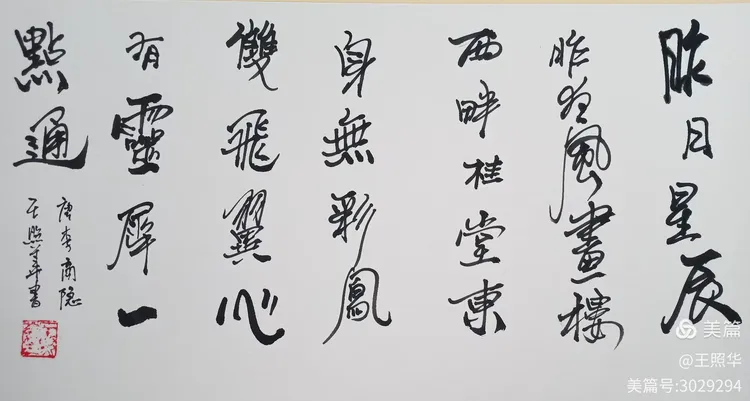 昨日星辰
昨夜風畫樓
西畔桂堂東
身無彩鳳
雙飛翼心
有靈犀一
點通
唐李商隐
王照華書
美篇
@王照华
美篇号:3029294